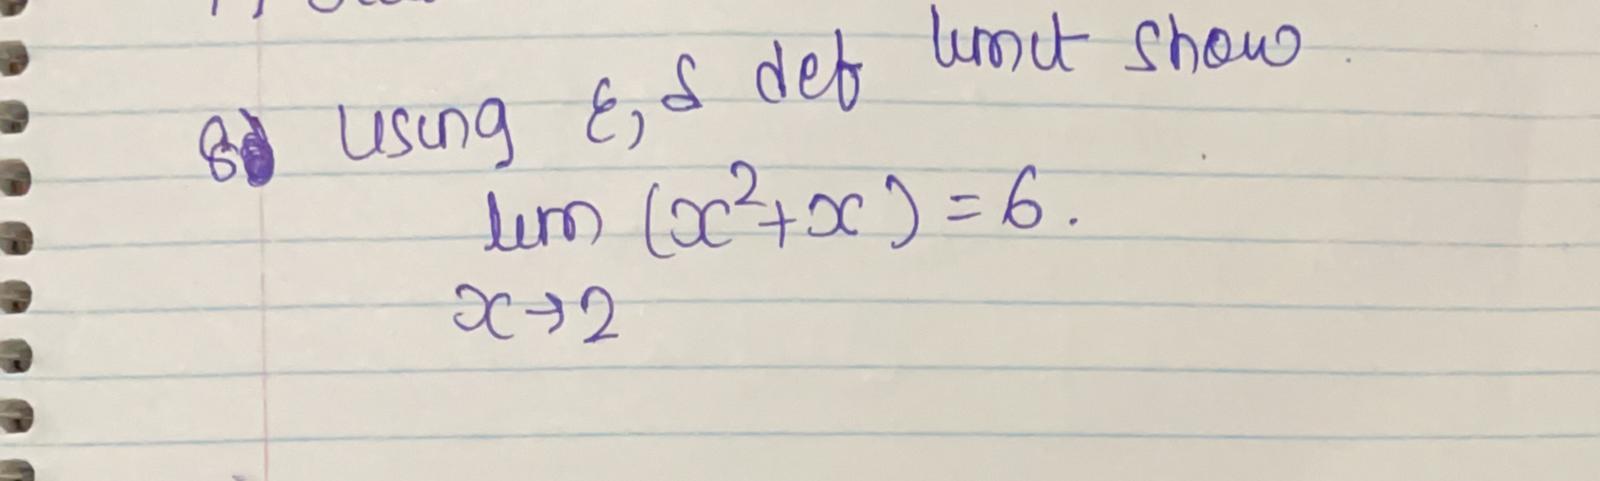 8) Using ε, δ def limit show.
lim (x²+x) = 6.
x→2